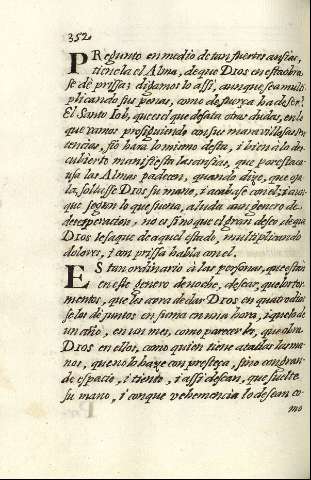 352
PRegunto en medio de tan fuertes ansias,
tienela el Alma, de que DIOS en esta obra
se dè prissa? digamos lo assi, aunque sea multi
plicando sus penas, como de fuerça ha de ser?
El Santo Iob, que es el que desata otras dudas, en lo
que vamos prosiguiendo con sus maravillosas sen
tencias, sìo haze lo mismo desta, i bien à lo des
cubierto manifiesta las ansias, que por esta cau
sa las Almas padecen, quando dize, que oxa
la, soltasse DIOS su mano, i acabasse con el; i aun
que segun lo que suena, aluda a un genero de
desesperacion, no es sino que el gran deseo de que
DIOS le saque de aquel estado, multiplicando
dolores, i con prissa habla con el.
ES tan ordinario à las personas, que están
en este genero de noche, desear, que los tor
mentos, que les avra de dar DIOS en quatro dias
se los de juntos en suma en una hora, i que lo de
un año, en un mes, como parecer les, que obra
DIOS en ellos, como quien tiene atadas las ma
nos, que no lo haze con presteça, sino con gran
de espacio, i tiento, i assi desean, que suelte
su mano, i con que vehemencia lo desean co
mo